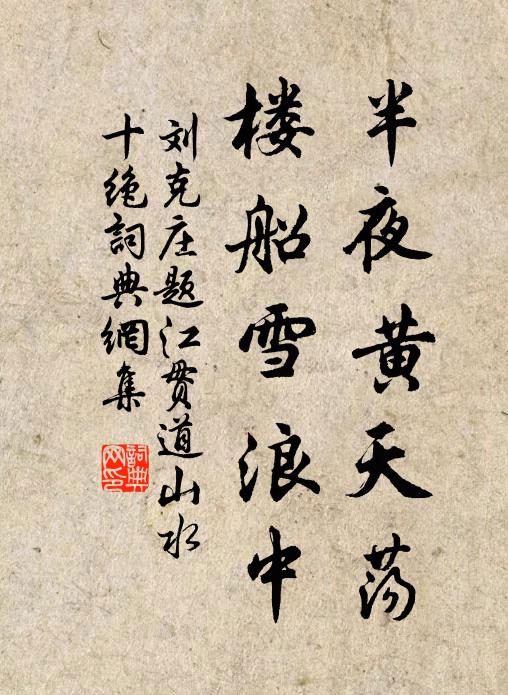 半夜黄天荡
楼船雪浪中
刘克庄题江贯道山水
十绝詞典網集
詞典
网印